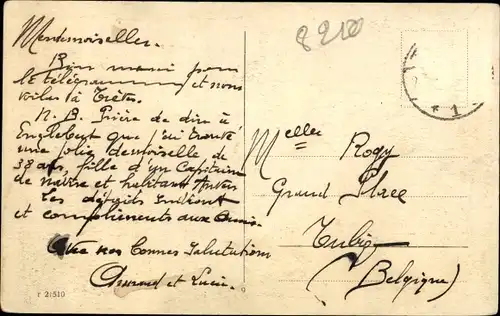 Mesdemoiselles.
Bien merci pour
le télégramme et nous
voilà à Trèves.
N. B. Prière de dire à
Englebert que j'ai trouvé
une jolie demoiselle de
38 ans, fille d'un Capitaine
de navire et habitant Anvers
Les détails suivront
et compliments aux Amis.
Avec nos bonnes salutations
Armand et
r 21510
8210
Melles Rogy
Grand Place
Tubize
(Belgique)
* 1